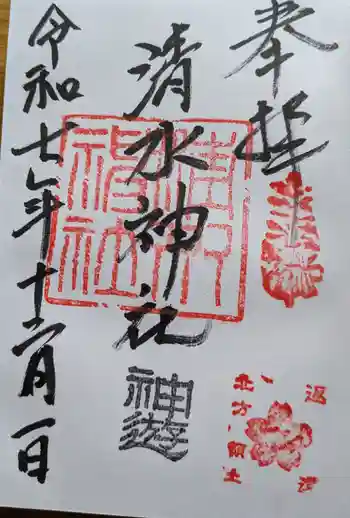 奉拝
清水神社
神遊
令和七年十二月一日
北方領土